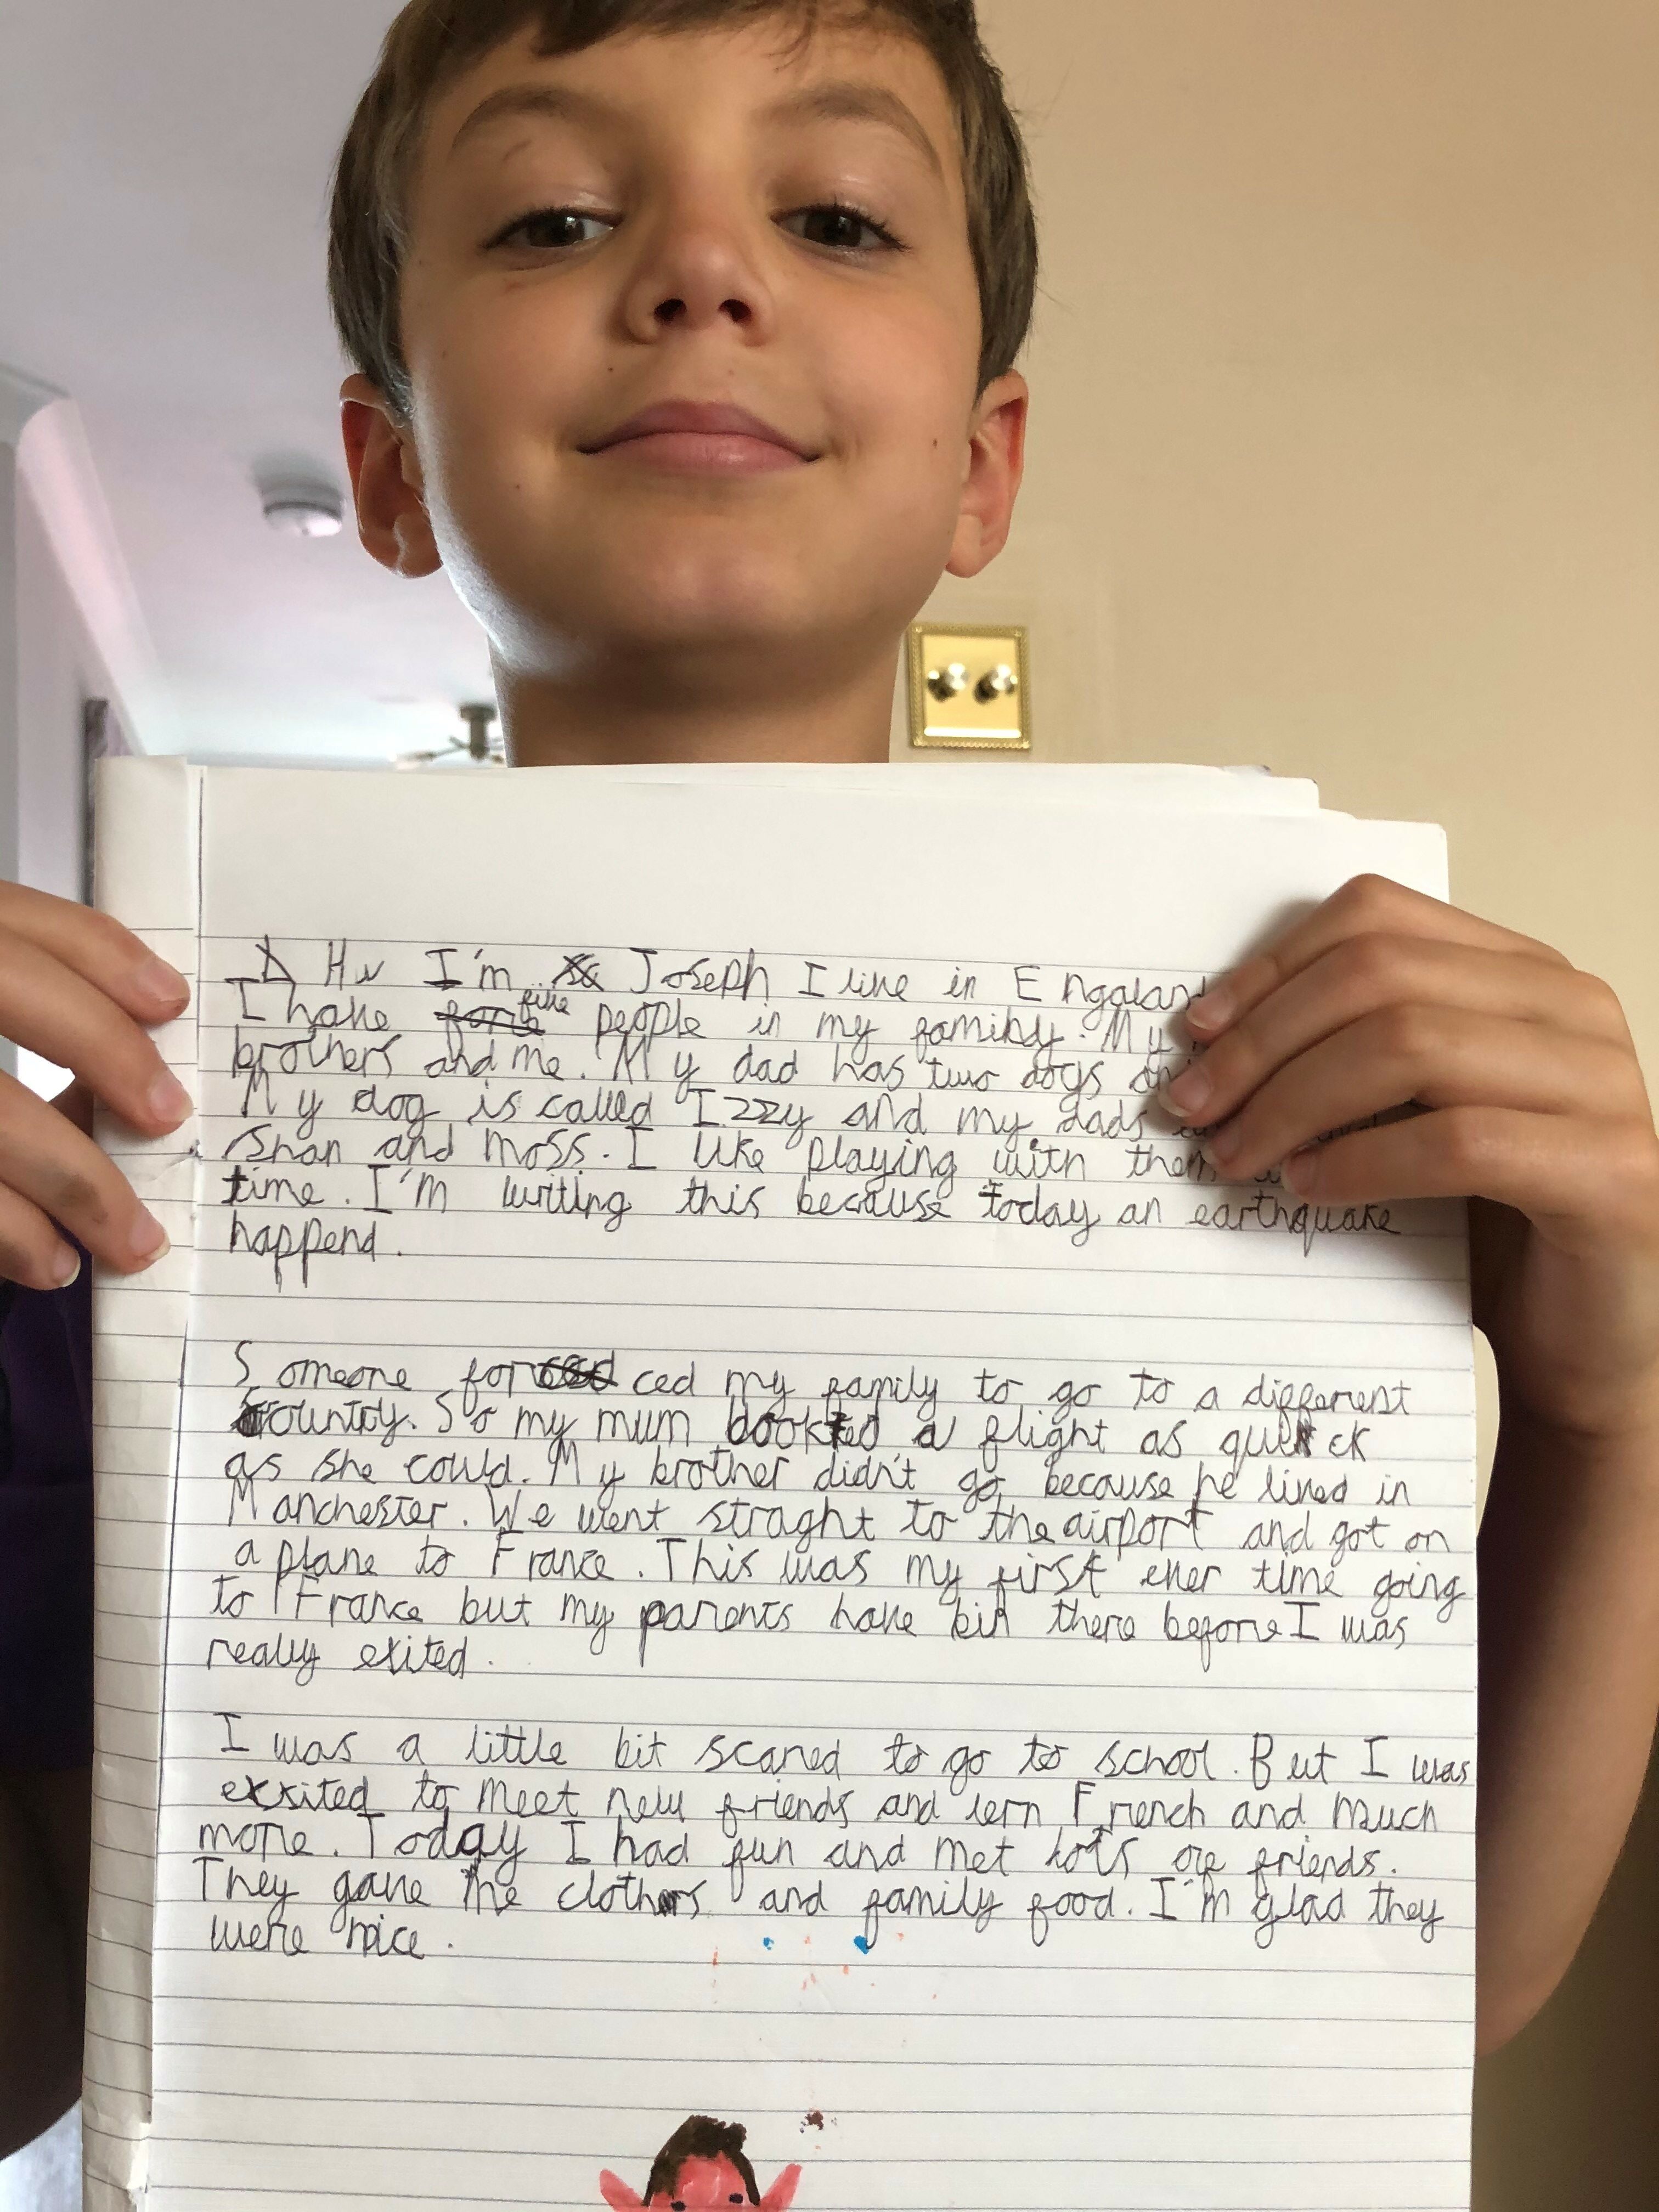 Hi I'm Joseph I live in Engaland
I have five people in my familey. My
brothers and me. My dad has two dogs
My dog is called Izzy and my dads
Shan and Moss. I like playing with them
time. I'm writing this because today an earthquake
happend.
Someone forced my family to go to a different
country. So my mum booked a flight as quick
as she could. My brother didn't go because he lived in
Manchester. We went straght to the airport and got on
a plane to France. This was my first ever time going
to France but my parents have bin there before I was
really exited.
I was a little bit scared to go to school. But I was
exsited to meet new friends and lern French and much
more. Today I had fun and met lots of friends.
They gave me clothers and family food. I'm glad they
were nice.